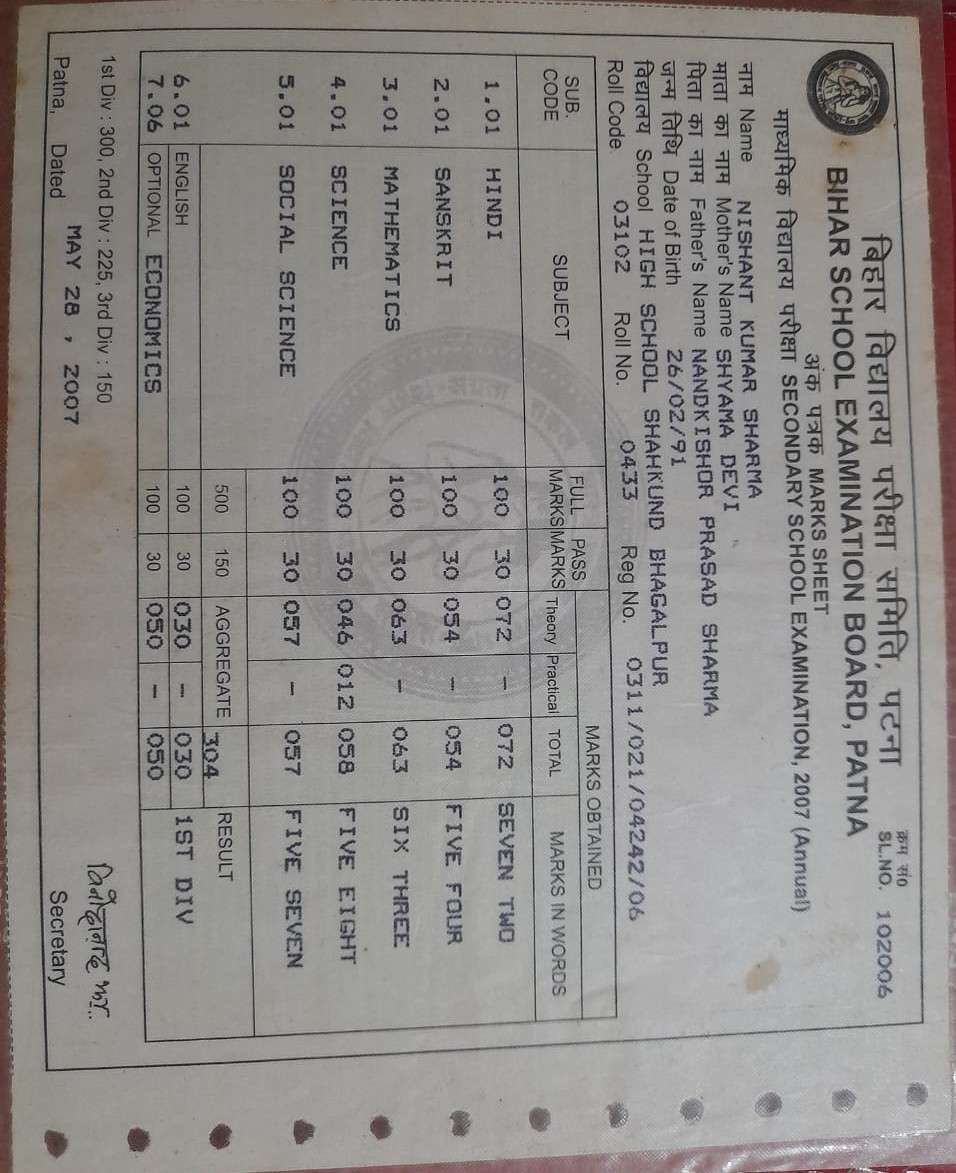 बिहार विद्यालय परीक्षा समिति, पटना
क्रम सं०
BIHAR SCHOOL EXAMINATION BOARD, PATNA
SL.NO. 102006
अंक पत्रक MARKS SHEET
माध्यमिक विद्यालय परीक्षा SECONDARY SCHOOL EXAMINATION, 2007 (Annual)
नाम Name NISHANT KUMAR SHARMA
माता का नाम Mother's Name SHYAMA DEVI
पिता का नाम Father's Name NANDKISHOR PRASAD SHARMA
जन्म तिथि Date of Birth 26/02/91
विद्यालय School HIGH SCHOOL SHAHKUND BHAGALPUR
Roll Code 03102 Roll No. 0433 Reg No. 0311/021/04242/06
SUB. CODE SUBJECT FULL MARKS PASS MARKS MARKS OBTAINED
Theory Practical TOTAL MARKS IN WORDS
1.01 HINDI 100 30 072 - 072 SEVEN TWO
2.01 SANSKRIT 100 30 054 - 054 FIVE FOUR
3.01 MATHEMATICS 100 30 063 - 063 SIX THREE
4.01 SCIENCE 100 30 046 012 058 FIVE EIGHT
5.01 SOCIAL SCIENCE 100 30 057 - 057 FIVE SEVEN
500 150 AGGREGATE 304 RESULT
6.01 ENGLISH 100 30 030 - 030 1ST DIV
7.06 OPTIONAL ECONOMICS 100 30 050 - 050
1st Div : 300, 2nd Div : 225, 3rd Div : 150
Patna, Dated MAY 28, 2007 Secretary